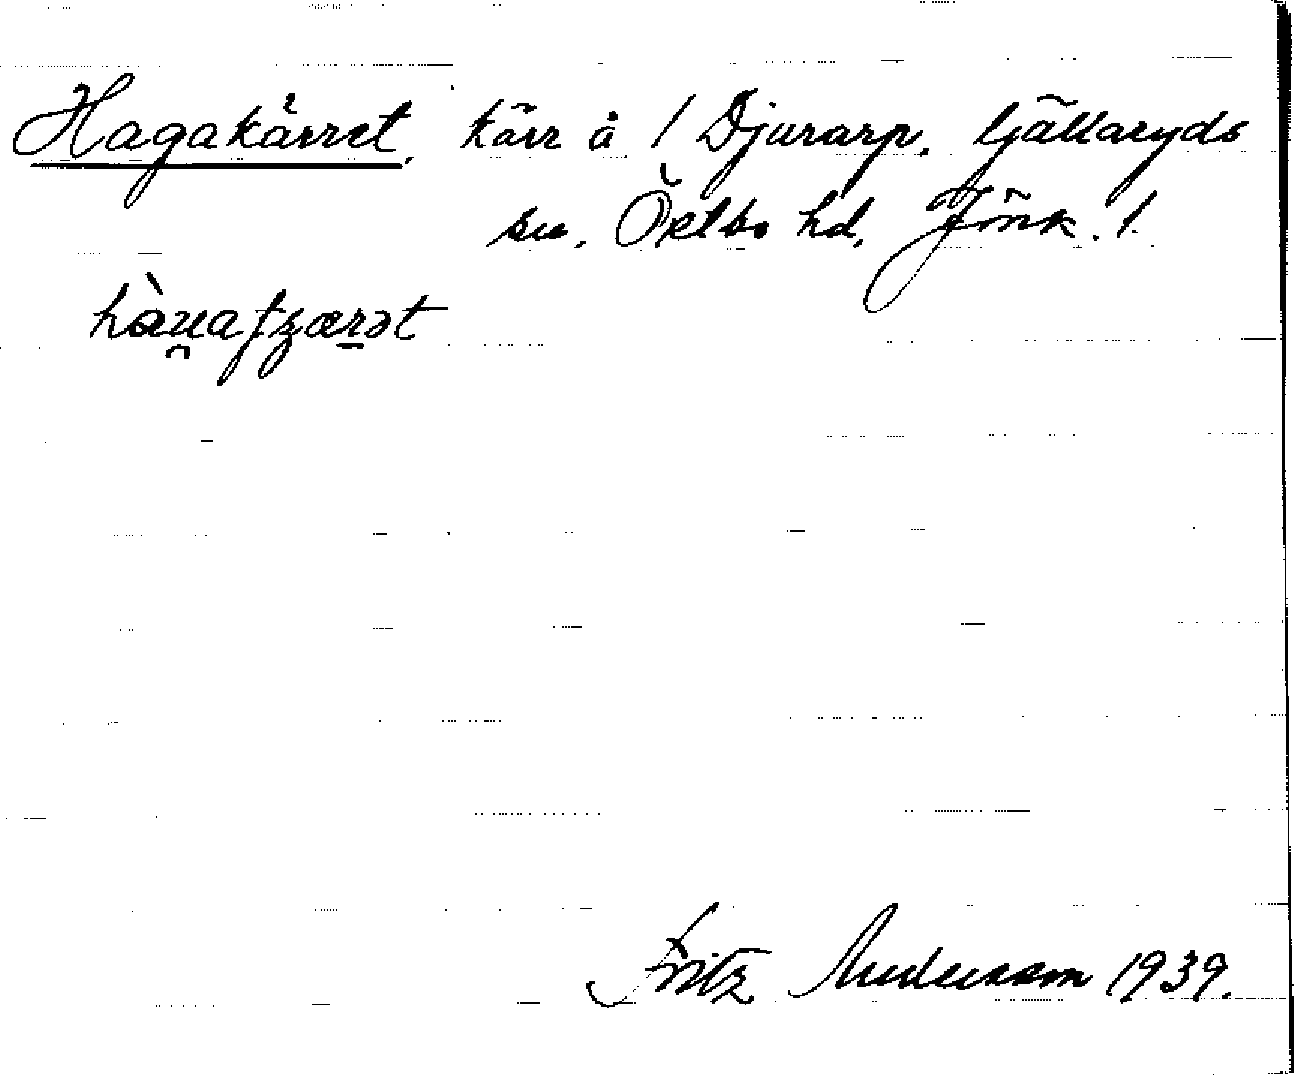 Hagakärret, kärr å 1 Djurarp, Ljällaryds
sn, Östbo hd, Jönk. l.
hàu̯afʒærət
Fritz Andersson 1939.